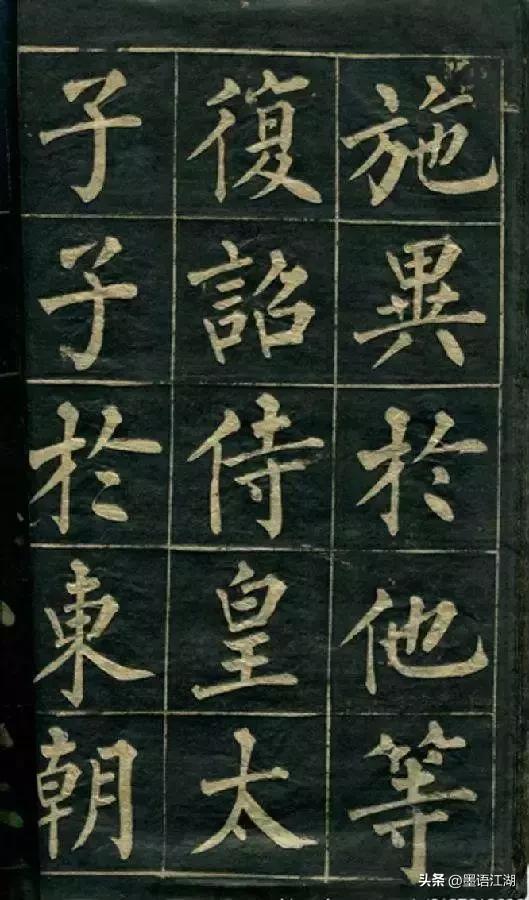 施異於他等
復詔侍皇太
子子於東朝
头条 @墨语江湖